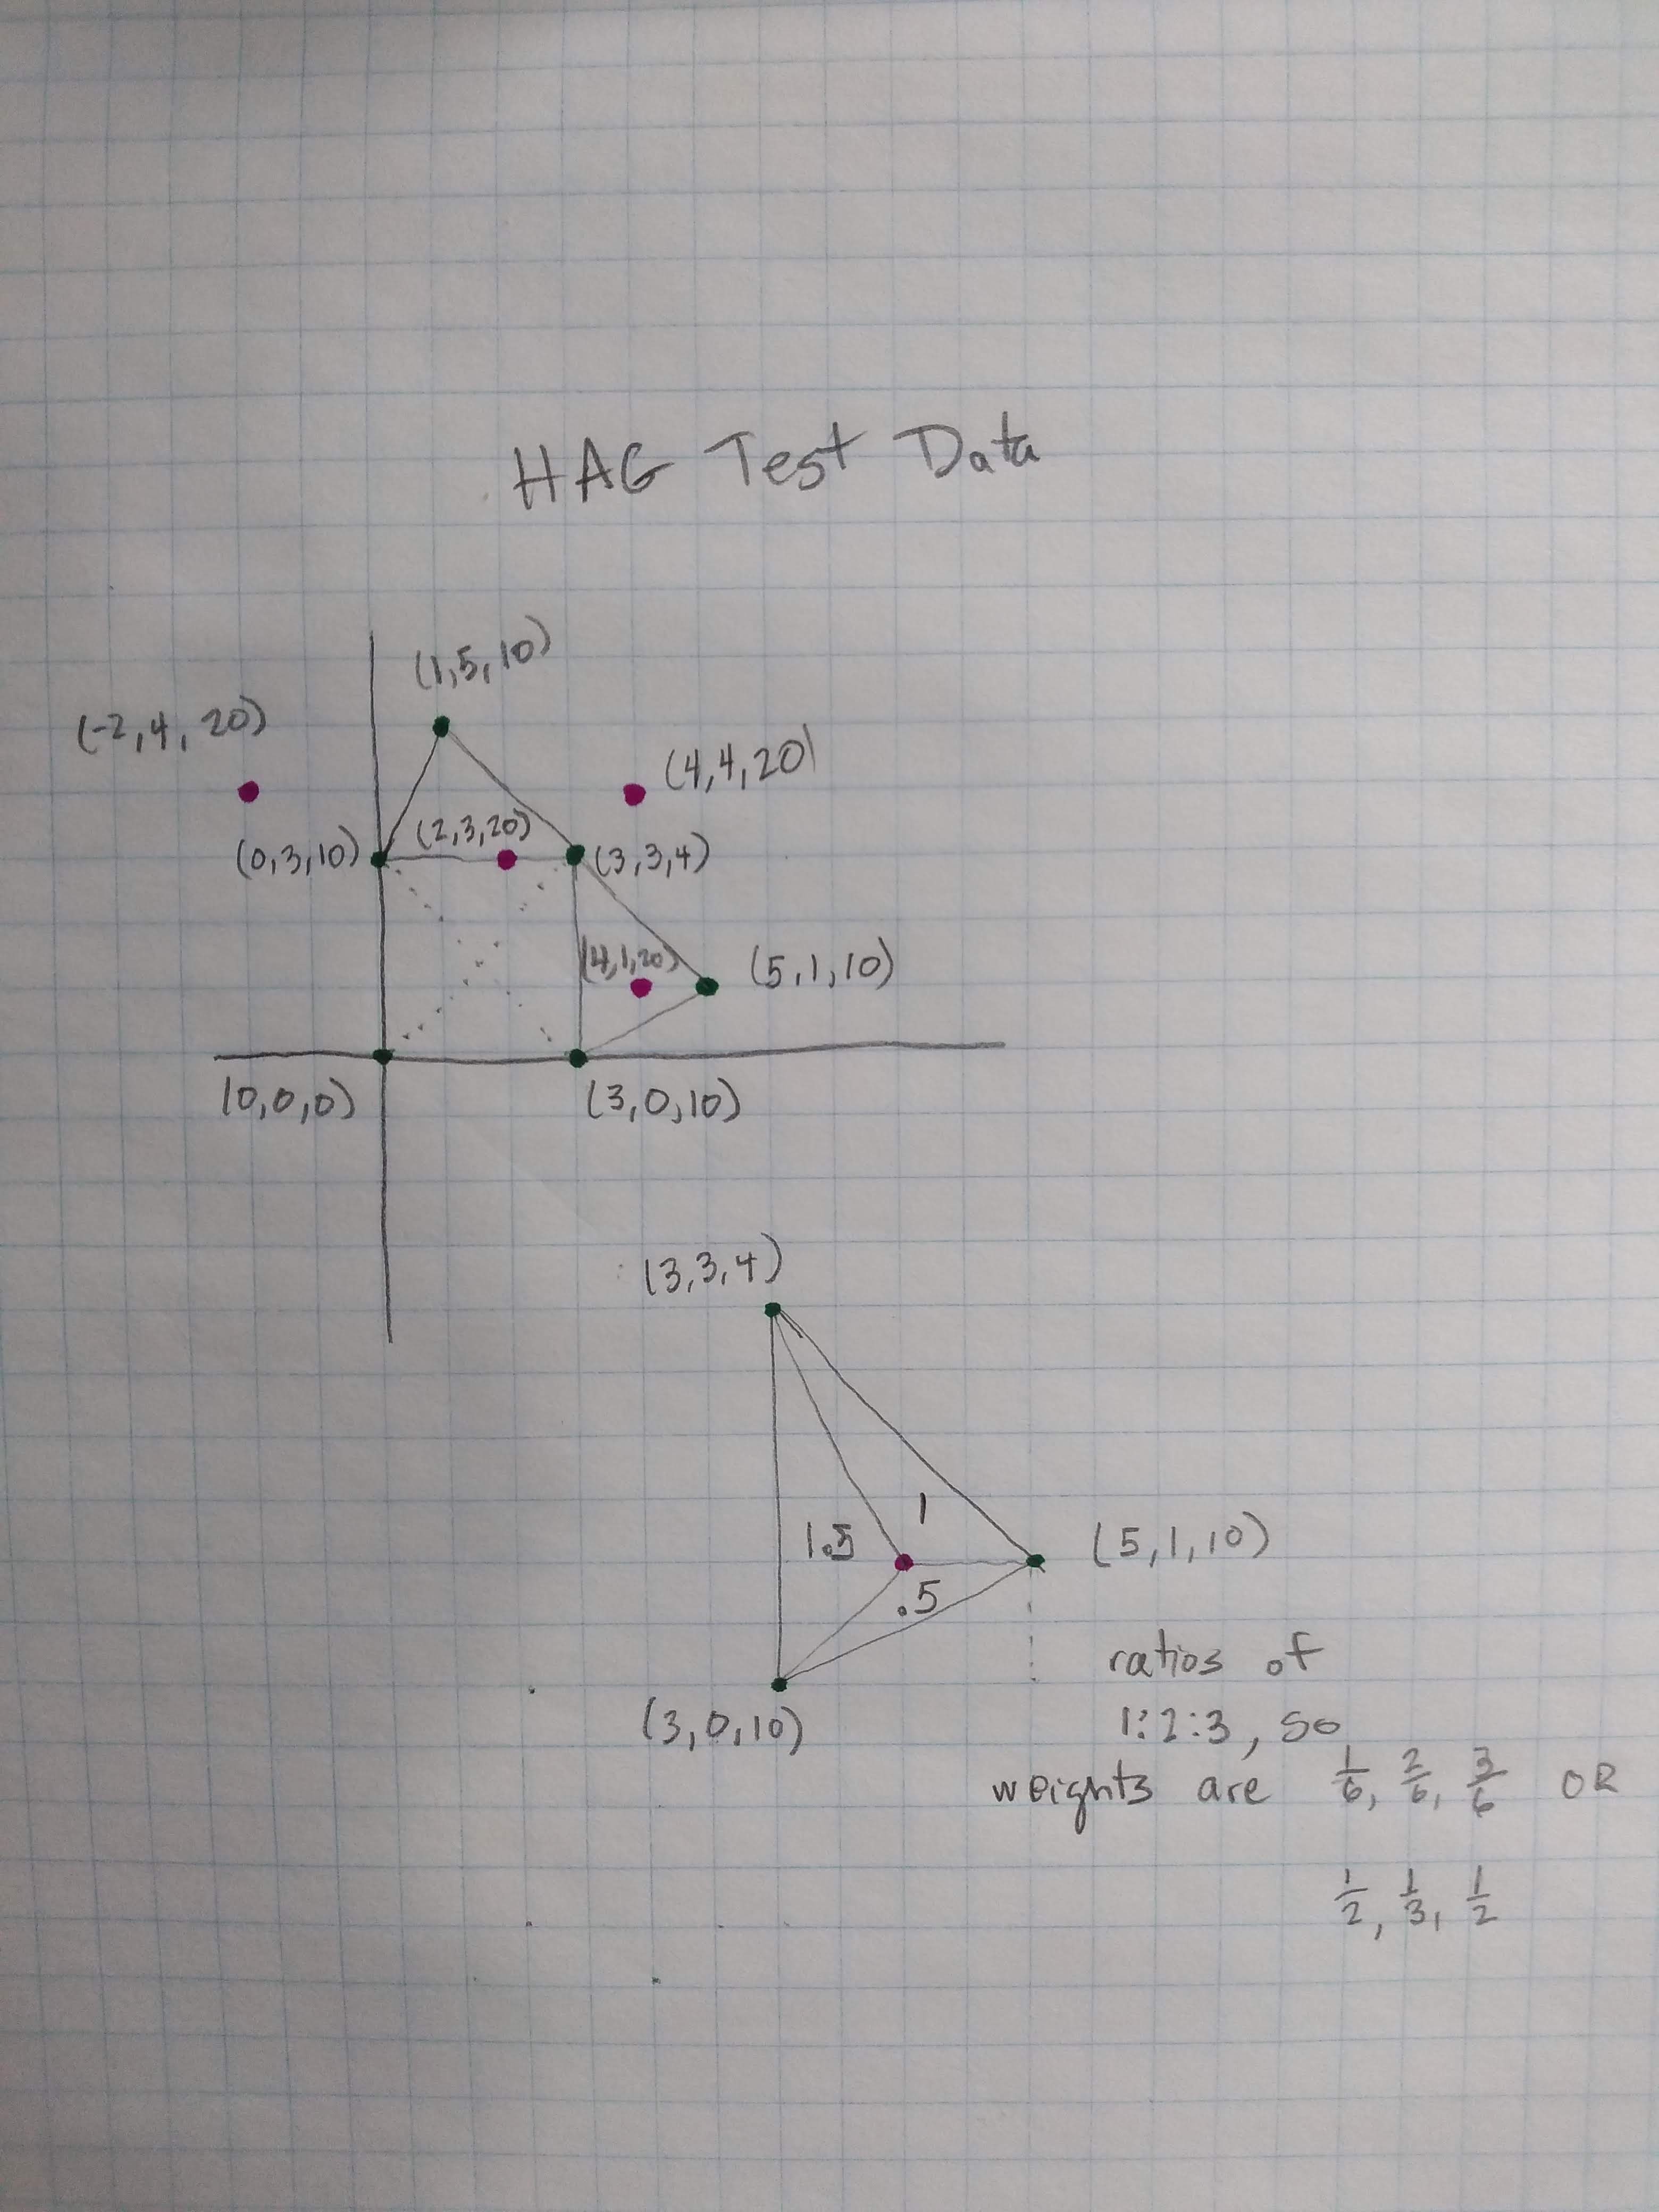 HAG Test Data
(1,5,10)
(-2,4,20)
(4,4,20)
(2,3,20)
(0,3,10)
(3,3,4)
(4,1,20)
(5,1,10)
(0,0,0)
(3,0,10)
(3,3,4)
1
1.5
(5,1,10)
.5
ratios of
(3,0,10)
1:2:3, so
weights are 1/6, 2/6, 3/6 OR
1/2, 1/3, 1/2